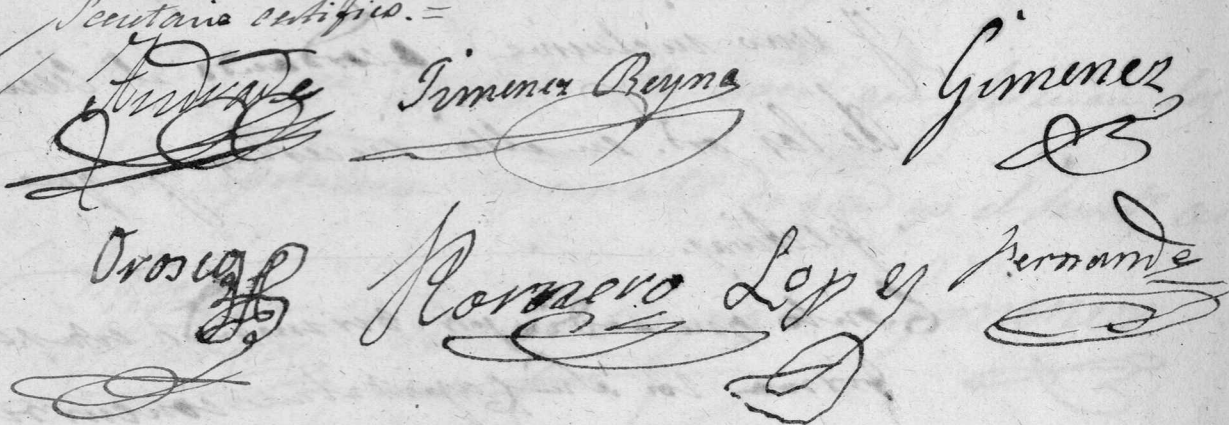 Secretario certifico. =
Andrade Jimenez Reyna Gimenez
Orosco Romero Lopez Fernande